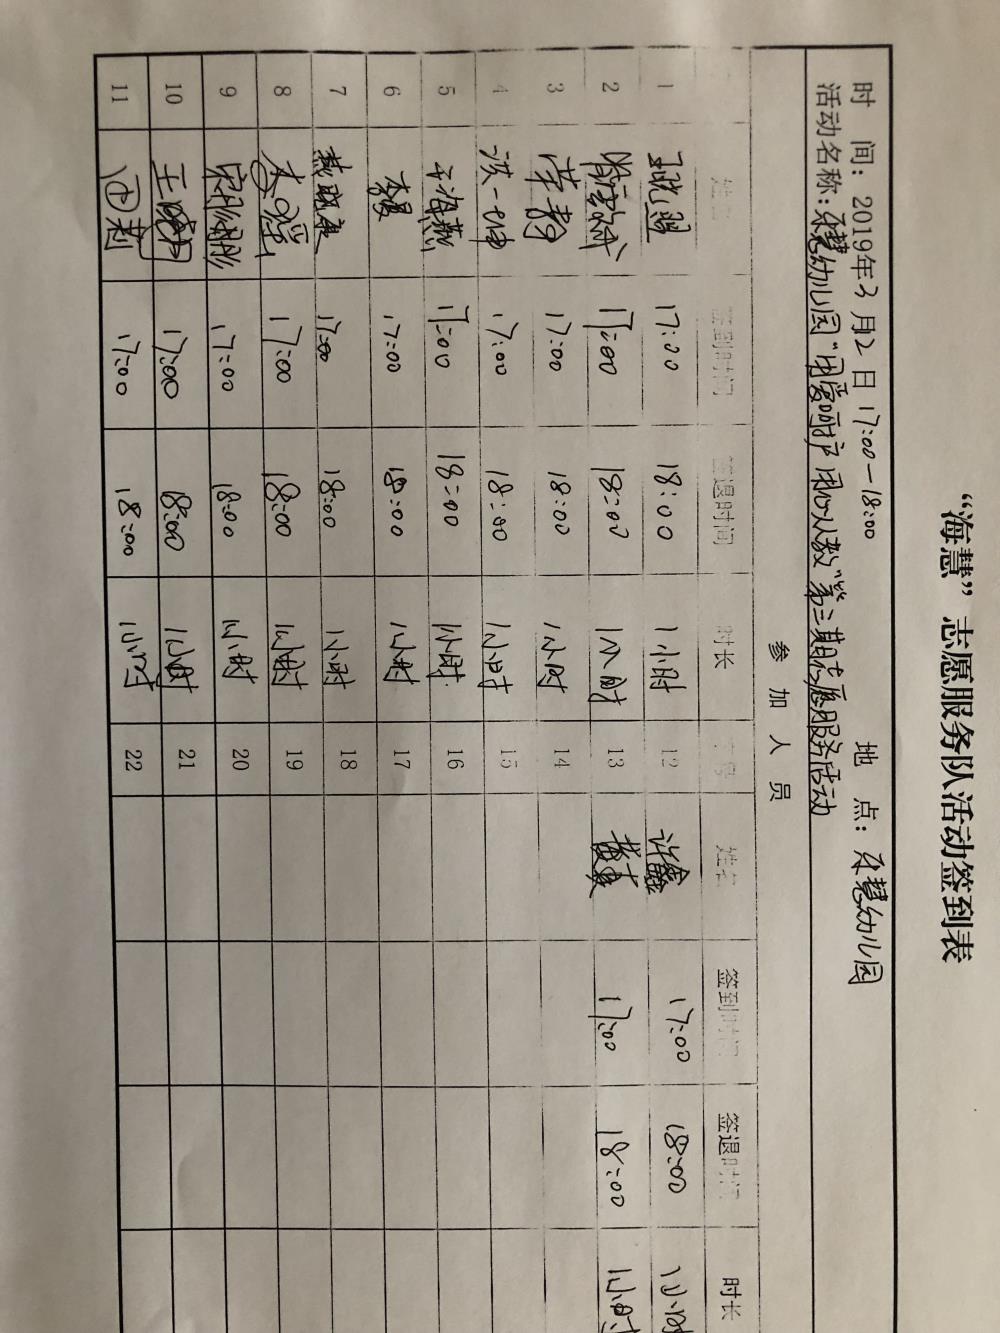 “海慧”志愿服务队活动签到表
时 间：2019年3月2日 17:00—18:00 地 点：禾慧幼儿园
活动名称：禾慧幼儿园“用爱呵护 用心人教”第三期志愿服务活动
参 加 人 员
姓名 签到时间 签退时间 时长 序号 姓名 签到时间 签退时间 时长
1 17:00 18:00 1小时 12 许鑫 17:00 18:00 1小时
2 17:00 18:00 1小时 13 17:00 18:00 1小时
3 17:00 18:00 1小时 14
4 洪一坤 17:00 18:00 1小时 15
5 海燕 17:00 18:00 1小时 16
6 李曼 17:00 18:00 1小时 17
7 17:00 18:00 1小时 18
8 17:00 18:00 1小时 19
9 17:00 18:00 1小时 20
10 王 17:00 18:00 1小时 21
11 田莉 17:00 18:00 1小时 22